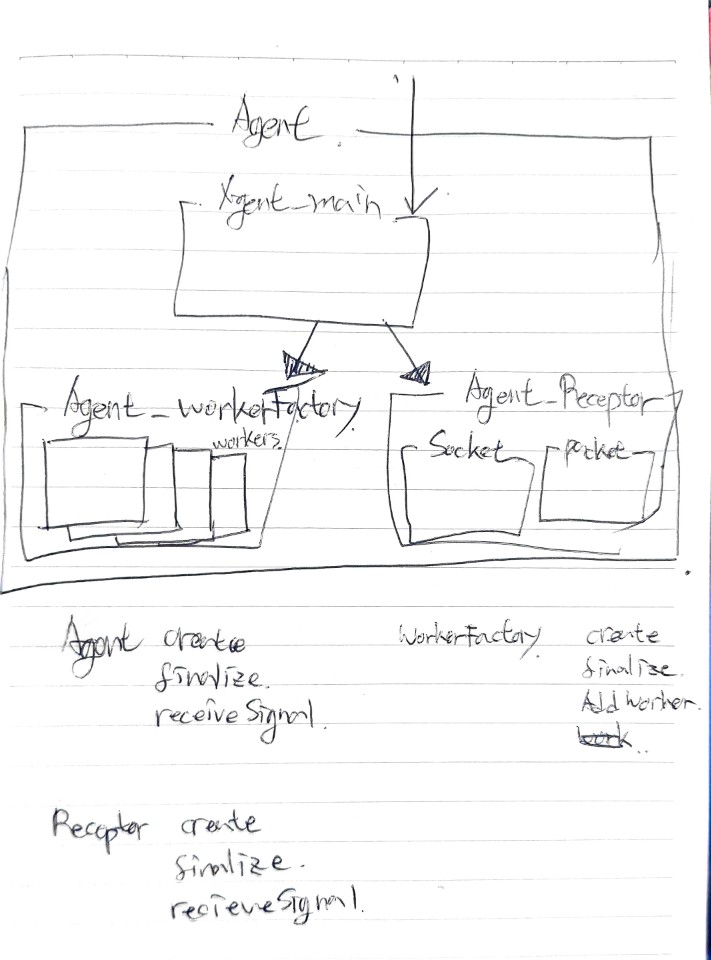 Agent.
Agent_main
Agent_workerFactory
workers.
Agent_Receptor
Socket
packet
Agent create
finalize.
receiveSignal.
WorkerFactory. create
finalize.
Add Worker.
work..
Receptor create
finalize.
recieveSignal.